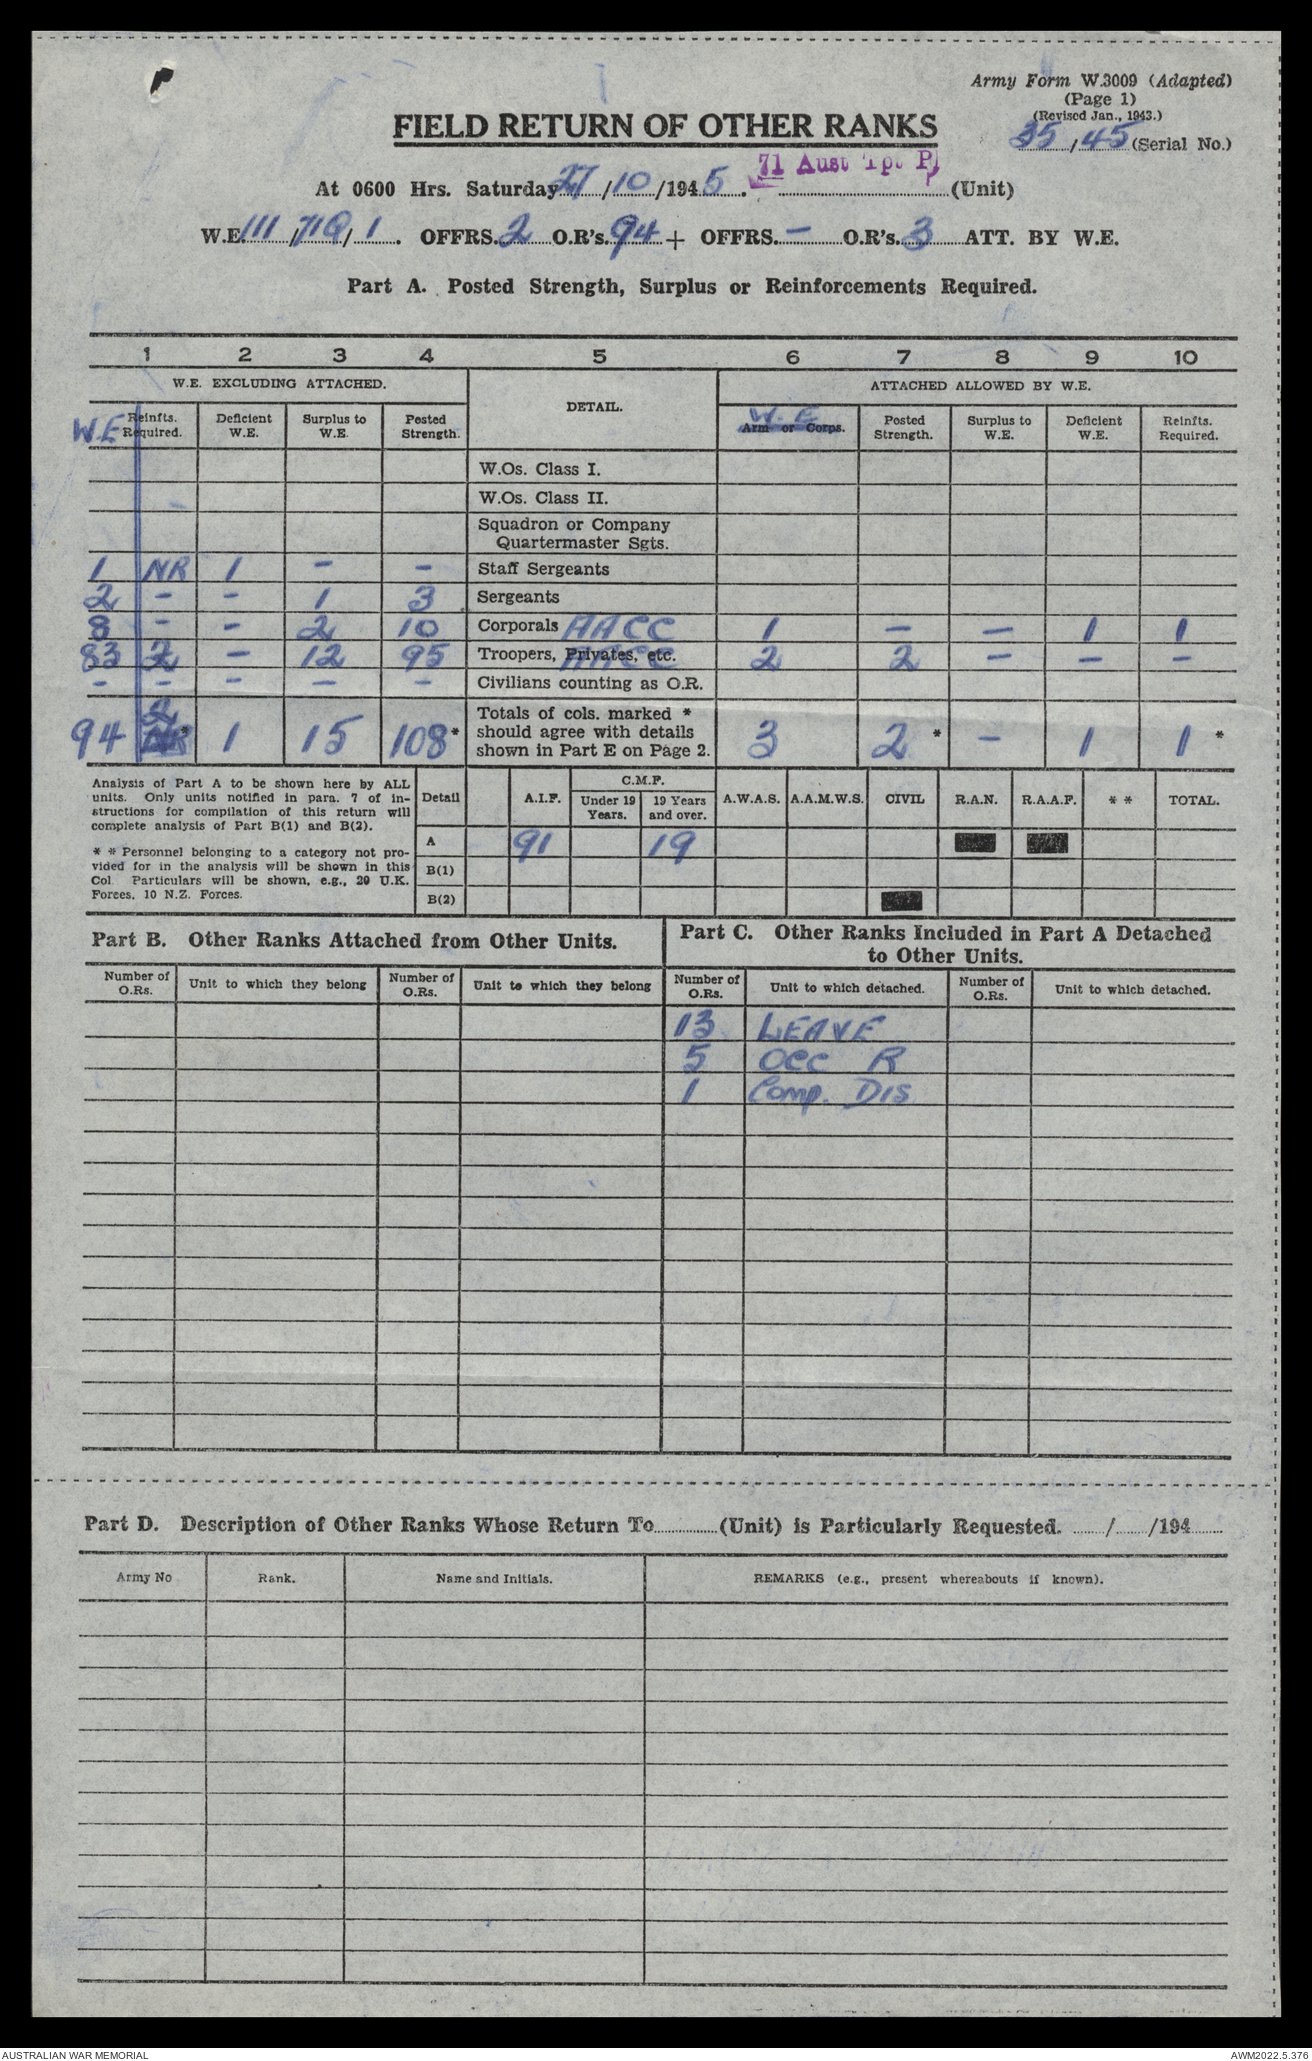 Army Form W.3009 (Adapted)
(Page 1)
(Revised Jan., 1943.)
35/45 (Serial No.)
FIELD RETURN OF OTHER RANKS
71 Aust Tpt Pl
At 0600 Hrs. Saturday 27/10/1945. (Unit)
W.E. 111/71Q/1. OFFRS. 2 O.R's. 94 + OFFRS. - O.R's. 3 ATT. BY W.E.
Part A. Posted Strength, Surplus or Reinforcements Required.
1 2 3 4 5 6 7 8 9 10
W.E. EXCLUDING ATTACHED. DETAIL. ATTACHED ALLOWED BY W.E.
W.E Reinfts. Required. Deficient W.E. Surplus to W.E. Posted Strength. W.E Arm or Corps. Posted Strength. Surplus to W.E. Deficient W.E. Reinfts. Required.
W.Os. Class I.
- W.Os. Class II.
Squadron or Company
Quartermaster Sgts.
1 NR 1 - - Staff Sergeants
2 - - 1 3 Sergeants
8 - - 2 10 Corporals AACC 1 - - 1 1
83 2 - 12 95 Troopers, Privates, etc. AACC 2 2 - - -
- - - - - Civilians counting as O.R.
94 * 1 15 108* Totals of cols. marked * should agree with details shown in Part E on Page 2. 3 2* - 1 1*
Analysis of Part A to be shown here by ALL
units. Only units notified in para. 7 of in-
structions for compilation of this return will
complete analysis of Part B(1) and B(2).
* * Personnel belonging to a category not pro-
vided for in the analysis will be shown in this
Col. Particulars will be shown, e.g., 20 U.K.
Forces, 10 N.Z. Forces.
Detail A.I.F. C.M.F. Under 19 Years. 19 Years and over. A.W.A.S. A.A.M.W.S. CIVIL R.A.N. R.A.A.F. * * TOTAL.
A 91 19
B(1)
B(2)
Part B. Other Ranks Attached from Other Units.
Number of O.Rs. Unit to which they belong Number of O.Rs. Unit to which they belong
Part C. Other Ranks Included in Part A Detached
to Other Units.
Number of O.Rs. Unit to which detached. Number of O.Rs. Unit to which detached.
13 LEAVE
5 OCC R
1 Comp. DIS
Part D. Description of Other Ranks Whose Return To (Unit) is Particularly Requested. / /194
Army No Rank. Name and Initials. REMARKS (e.g., present whereabouts if known).
AUSTRALIAN WAR MEMORIAL
AWM2022.5.376